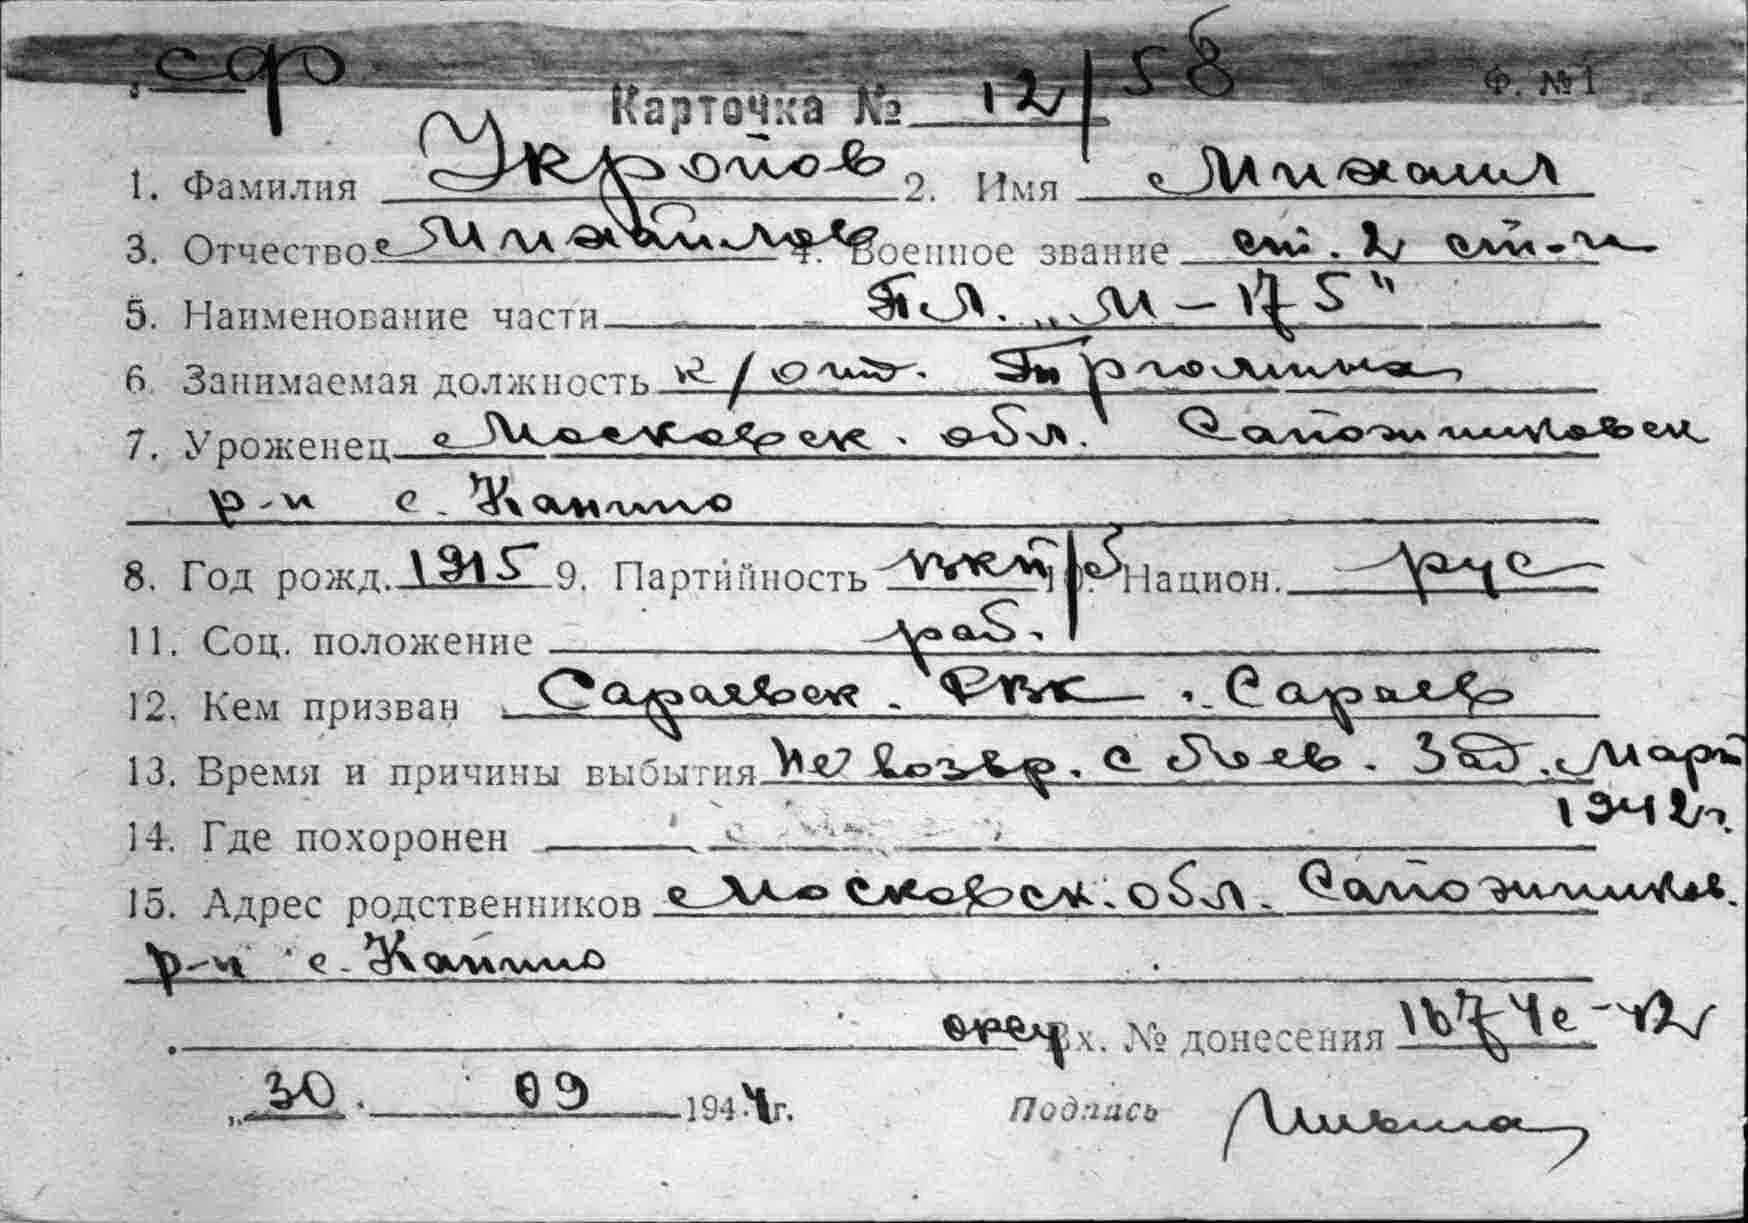 сф
Ф. №1
Карточка № 12/58
1. Фамилия Укропов 2. Имя Михаил
3. Отчество Михайлов 4. Военное звание ст. 2 ст-и
5. Наименование части ПЛ. „М-175"
6. Занимаемая должность к/отд.
7. Уроженец Московск. обл. Сапожниковск
р-н с. Канино
8. Год рожд. 1915 9. Партийность ВКП/б 10. Национ. рус
11. Соц. положение раб.
12. Кем призван Сараевск. РВК. Сараев
13. Время и причины выбытия не возвр. с боев. зад. Март
1942г.
14. Где похоронен
15. Адрес родственников Московск. обл. Сапожников.
р-н с. Канино
Вх. № донесения
„30. 09 1944г. Подпись